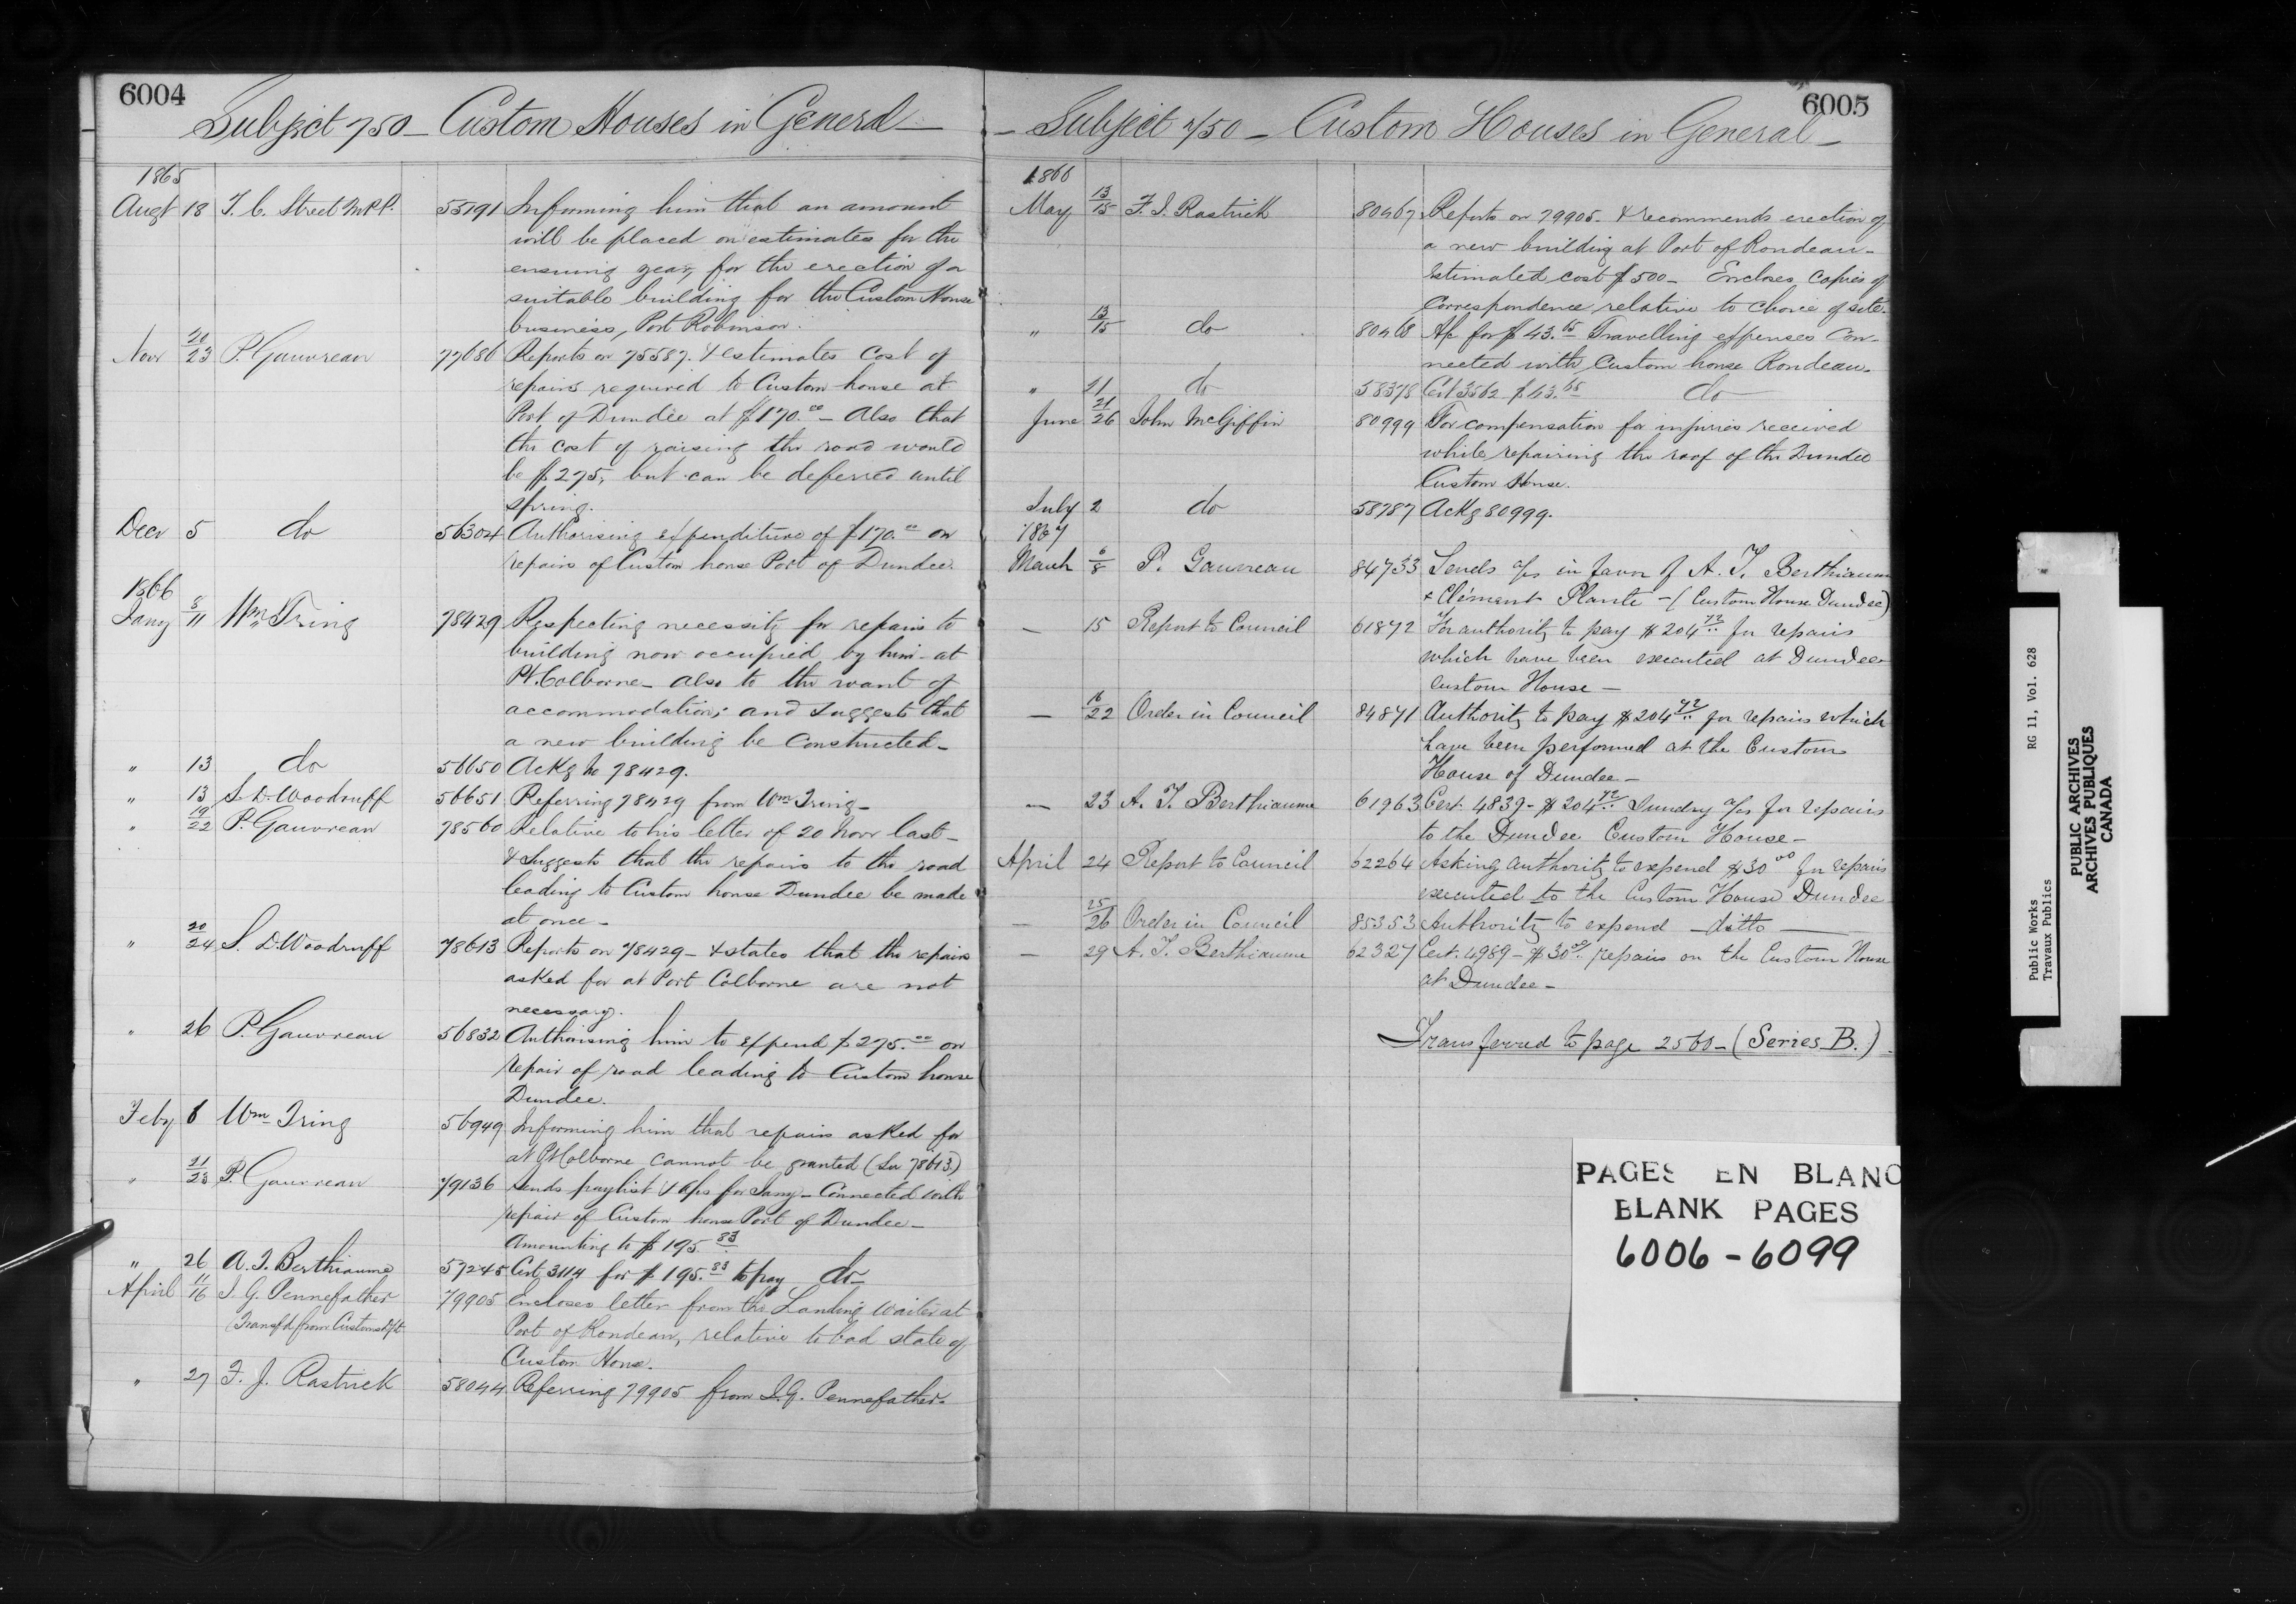 6004
Subject 750 – Custom Houses in General –
1865
Augt 18 T. C. Street M.P.P. 55191 Informing him that an amount
will be placed on estimates for the
ensuing year, for the erection of a
suitable building for the Custom House
business, Port Robinson.
Novr 20/23 P. Gauvreau 77686 Reports on 75587. & estimates cost of
repairs required to Custom house at
Port of Dundee at $170.00 – Also that
the cost of raising the road would
be $275, but can be deferred until
spring.
Decr 5 do 56304 Authorising expenditure of $170.00 on
repairs of Custom house Port of Dundee.
1866
Jany 8/11 Wm Tring 78429 Respecting necessity for repairs to
building now occupied by him – at
Pt. Colborne – also to the want of
accommodation; and suggests that
a new building be constructed –
" 13 do 56650 Ackg no 78429.
" 13 S. D. Woodruff 56651 Referring 78429 from Wm Tring –
" 19/22 P. Gauvreau 78560 Relative to his letter of 20 Novr last –
& suggests that the repairs to the road
leading to Custom house Dundee be made
at once –
" 20/24 S. D. Woodruff 78613 Reports on 78429 – & states that the repairs
asked for at Port Colborne are not
necessary.
" 26 P. Gauvreau 56832 Authorising him to expend $275.00 on
repair of road leading to Custom house
Dundee.
Feby 6 Wm Tring 56949 Informing him that repairs asked for
at Pt Colborne cannot be granted (See 78613)
" 21/23 P. Gauvreau 79136 Sends paylist & a/cs for Jany – Connected with
repair of Custom house Port of Dundee –
Amounting to $195.83
" 26 A. T. Berthiaume 57245 Cert 3114 for $195.83 to pay do –
April 11/16 J. G. Pennefather 79905 Encloses letter from the Landing Waiter at
(Transfd from Customs Dpt Port of Rondeau, relative to bad state of
Custom House.
" 27 F. J. Rastrick 58044 Referring 79905 from J. G. Pennefather.
6005
– Subject 750 – Custom Houses in General –
1866
May 13/15 F. J. Rastrick 80467 Reports on 79905. & recommends erection of
a new building at Port of Rondeau –
Estimated cost $500 – Encloses copies of
Correspondence relative to choice of site.
" 13/15 do 80468 A/c for $43.65 Travelling expenses Con-
nected with Custom house Rondeau.
" 21 do 58378 Cert 3562 $43.65 do
June 21/26 John McGiffin 80999 For compensation for injuries received
while repairing the roof of the Dundee
Custom House.
July 2 do 58787 Ackg 80999.
1867
March 6/8 P. Gauvreau 84733 Sends a/cs in favor of A. T. Berthiaume
& Clément Plante – (Custom House Dundee)
— 15 Report to Council 61872 For authority to pay $204.72 for repairs
which have been executed at Dundee
Custom House –
— 16/22 Order in Council 84871 Authority to pay $204.72 for repairs which
have been performed at the Custom
House of Dundee –
— 23 A. T. Berthiaume 61963 Cert. 4839 – $204.72 Sundry a/cs for repairs
to the Dundee Custom House –
April 24 Report to Council 62264 Asking authority to expend $30.00 for repairs
executed to the Custom House Dundee
— 25/26 Order in Council 85353 Authority to expend – ditto —
— 29 A. T. Berthiaume 62327 Cert. 4989 – $30.00 repairs on the Custom House
at Dundee –
Transferred to page 2560 – (Series B.)
PAGES EN BLANC
BLANK PAGES
6006 – 6099
Public Works RG 11, Vol. 628
Travaux Publics
PUBLIC ARCHIVES
ARCHIVES PUBLIQUES
CANADA